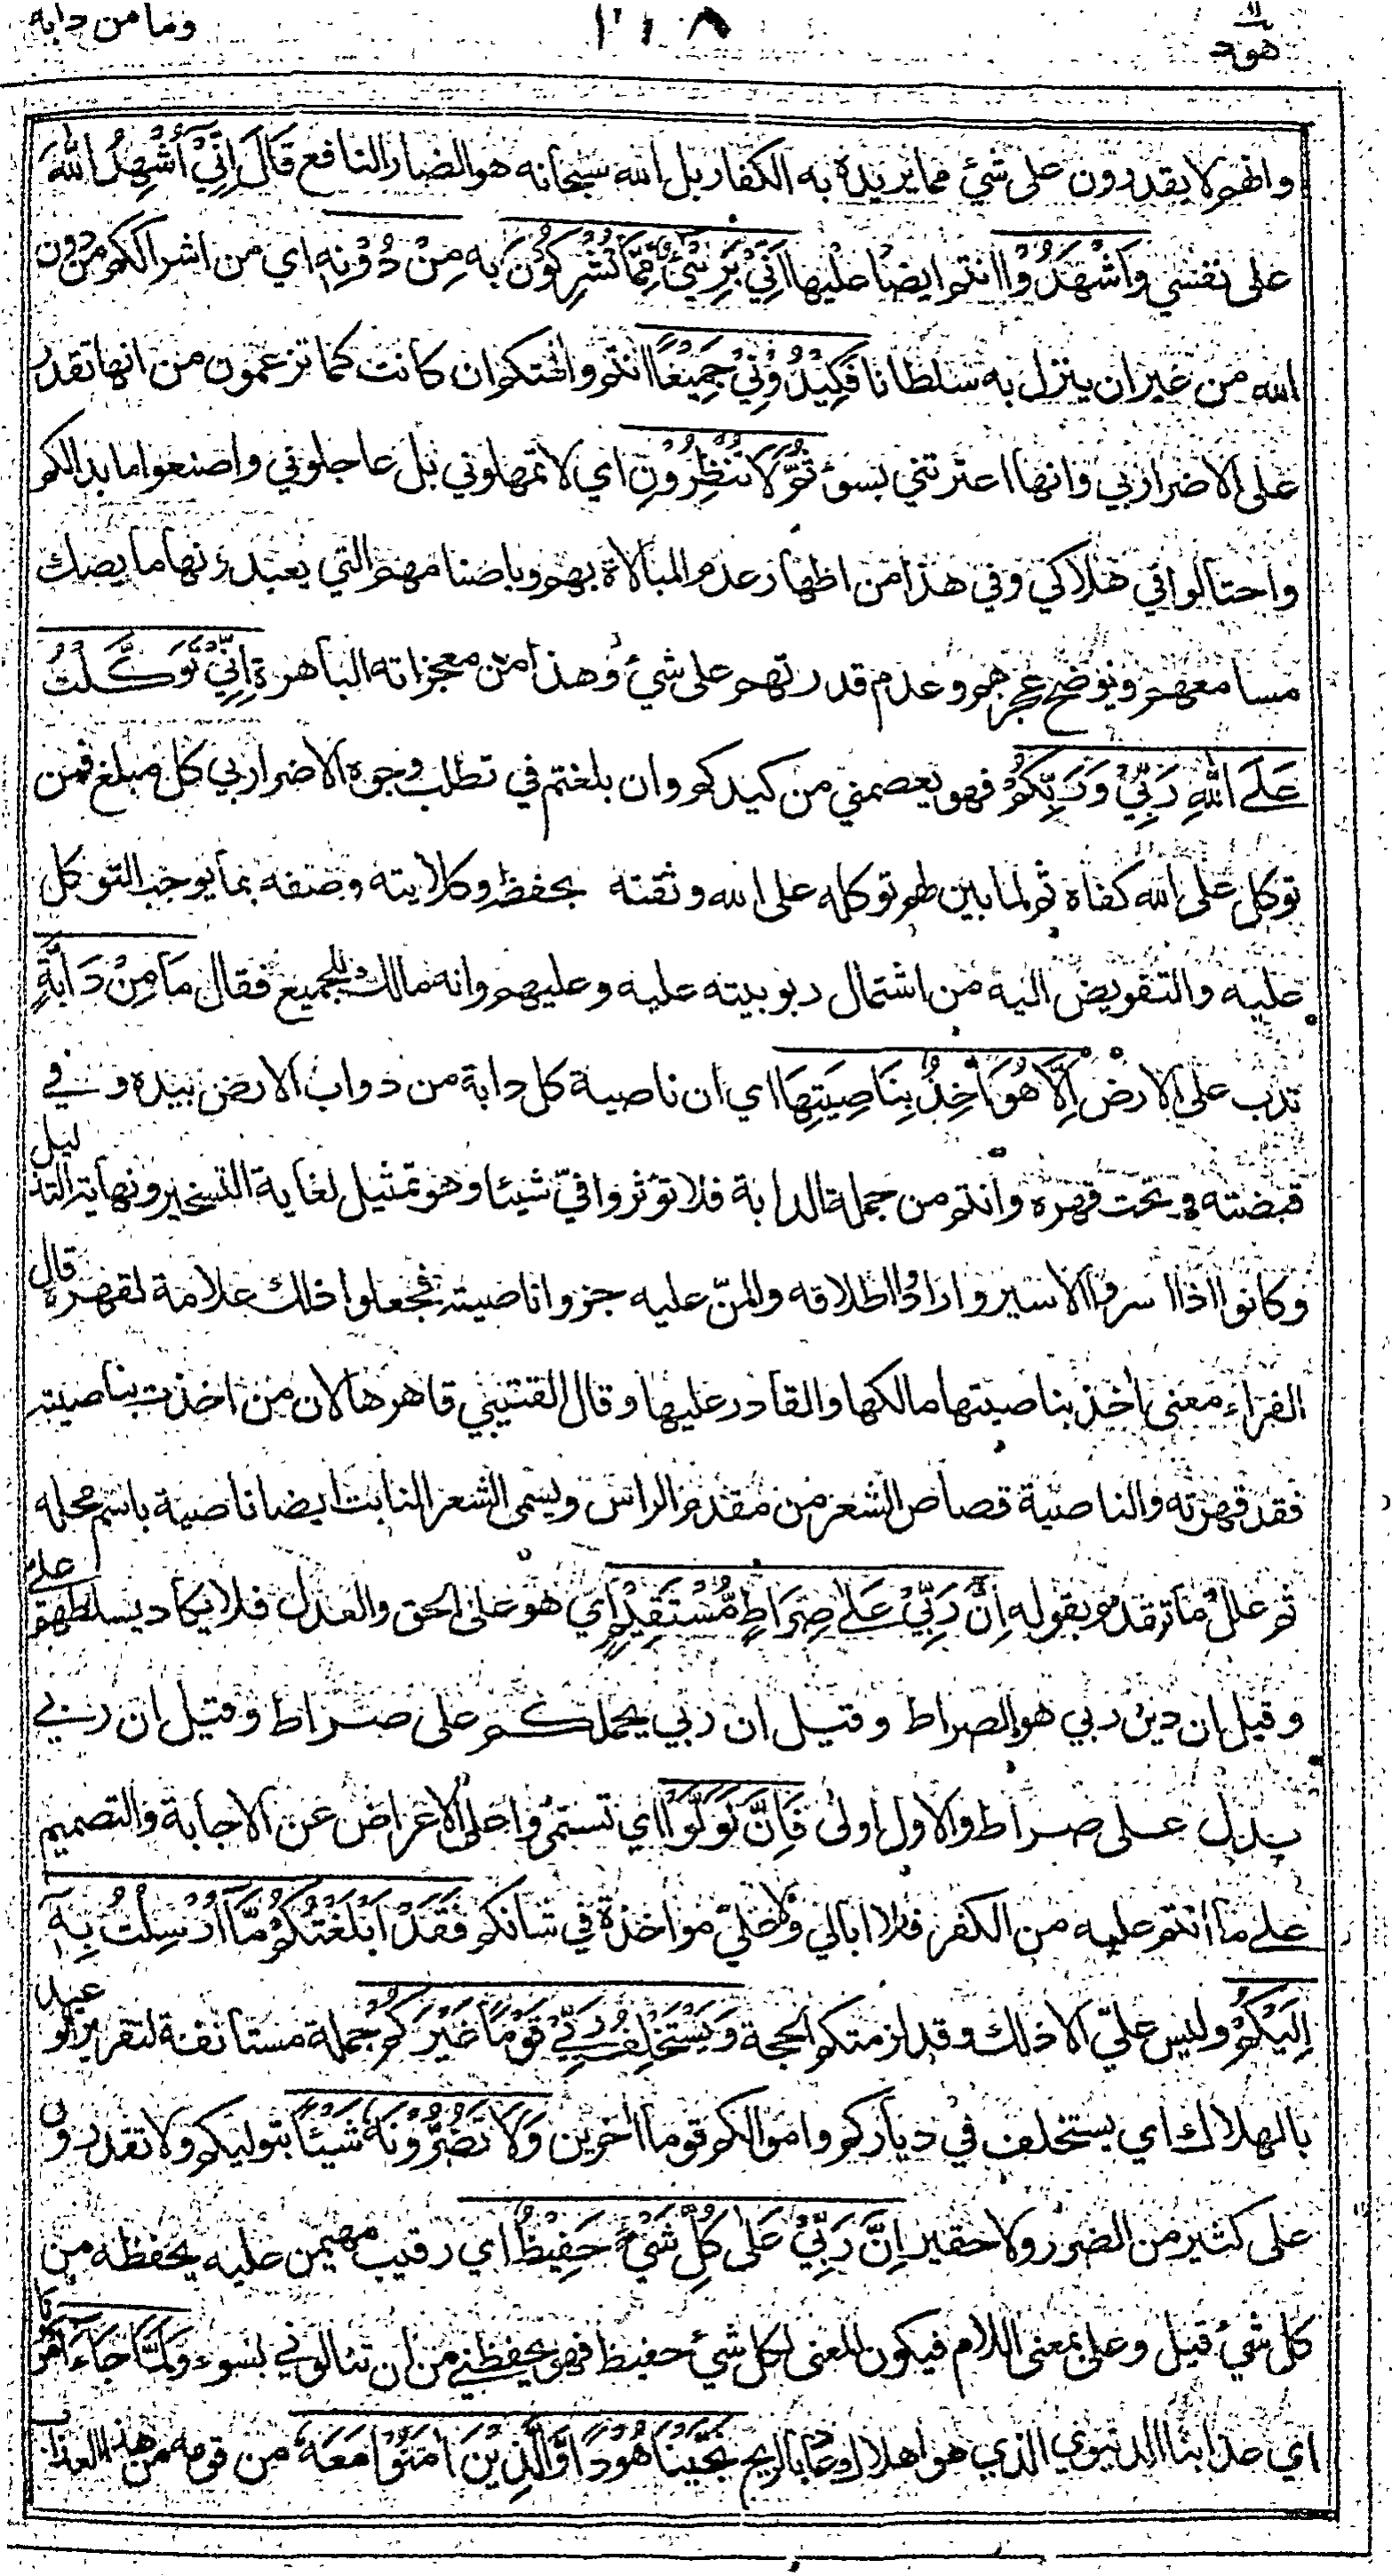 هود ١١
٢١٨
وما من دابة
وانهم لا يقدرون على شئ مما يريده به الكفار بل الله سبحانه هو الضار النافع قَالَ اِنِّيْ اُشْهِدُ اللّٰهَ
على نفسي وَاشْهَدُوْا انتم ايضا عليها اَنِّيْ بَرِيْٓءٌ مِّمَّا تُشْرِكُوْنَ به مِنْ دُوْنِهِ اي من اشراككم من دون
الله من غير ان ينزل به سلطانا فَكِيْدُوْنِيْ جَمِيْعًا انتم والهتكم ان كانت كما تزعمون من انها تقدر
على الاضرار بي وانها اعترتني بسوء ثُمَّ لَا تُنْظِرُوْنِ اي لا تمهلوني بل عاجلوني واصنعوا ما بدا لكم
واحتالوا في هلاكي وفي هذا من اظهار عدم المبالاة بهم وباصنامهم التي يعبدونها ما يصك
مسامعهم ويوضح عجزهم وعدم قدرتهم على شئ وهذا من معجزاته الباهرة اِنِّيْ تَوَكَّلْتُ
عَلَى اللّٰهِ رَبِّيْ وَرَبِّكُمْ فهو يعصمني من كيدكم وان بلغتم في تطلب وجوه الاضرار بي كل مبلغ فمن
توكل على الله كفاه ثم لما بين لهم توكله على الله وثقته بحفظه وكلايته وصفه بما يوجب التوكل
عليه والتفويض اليه من اشتمال ربوبيته عليه وعليهم وانه مالك للجميع فقال مَا مِنْ دَابَّةٍ
تدب على الارض اِلَّا هُوَ اٰخِذٌ بِنَاصِيَتِهَا اي ان ناصية كل دابة من دواب الارض بيده وفي
قبضته وتحت قهره وانتم من جملة الدابة فلا تؤثروا فيّ شيئا وهو تمثيل لغاية التسخير ونهاية التذليل
وكانوا اذا اسروا الاسير وارادوا اطلاقه والمنّ عليه جزوا ناصيته فجعلوا ذلك علامة لقهره قال
الفراء معنى اخذ بناصيتها مالكها والقادر عليها وقال القتيبي قاهرها لان من اخذت بناصيته
فقد قهرته والناصية قصاص الشعر من مقدم الراس ويسمى الشعر النابت ايضا ناصية باسم محله
ثم علل ما تقدم بقوله اِنَّ رَبِّيْ عَلٰى صِرَاطٍ مُّسْتَقِيْمٍ اي هو على الحق والعدل فلا يكاد يسلطهم عليّ
وقيل ان دين ربي هو الصراط وقيل ان ربي يحملكم على صراط وقيل ان ربي
يدل على صراط والاول اولى فَاِنْ تَوَلَّوْا اي تستمروا على الاعراض عن الاجابة والتصميم
على ما انتم عليه من الكفر فلا ابالي ولا عليّ مواخذة في شانكم فَقَدْ اَبْلَغْتُكُمْ مَّا اُرْسِلْتُ بِهٖ
اِلَيْكُمْ وليس عليّ الا ذلك وقد لزمتكم الحجة وَيَسْتَخْلِفُ رَبِّيْ قَوْمًا غَيْرَكُمْ جملة مستانفة لتقرير الوعيد
بالهلاك اي يستخلف في دياركم واموالكم قوما اخرين وَلَا تَضُرُّوْنَهٗ شَيْئًا بتوليكم ولا تقدرون
على كثير من الضرر ولا حقير اِنَّ رَبِّيْ عَلٰى كُلِّ شَيْءٍ حَفِيْظٌ اي رقيب مهيمن عليه يحفظه من
كل شئ قيل وعلى بمعنى اللام فيكون المعنى لكل شئ حفيظ فهو يحفظني من ان تنالوني بسوء وَلَمَّا جَآءَ اَمْرُنَا
اي عذابنا الدنيوي الذي هو اهلاك عاد بالريح نَجَّيْنَا هُوْدًا وَّالَّذِيْنَ اٰمَنُوْا مَعَهٗ من قومه من هذا العذاب